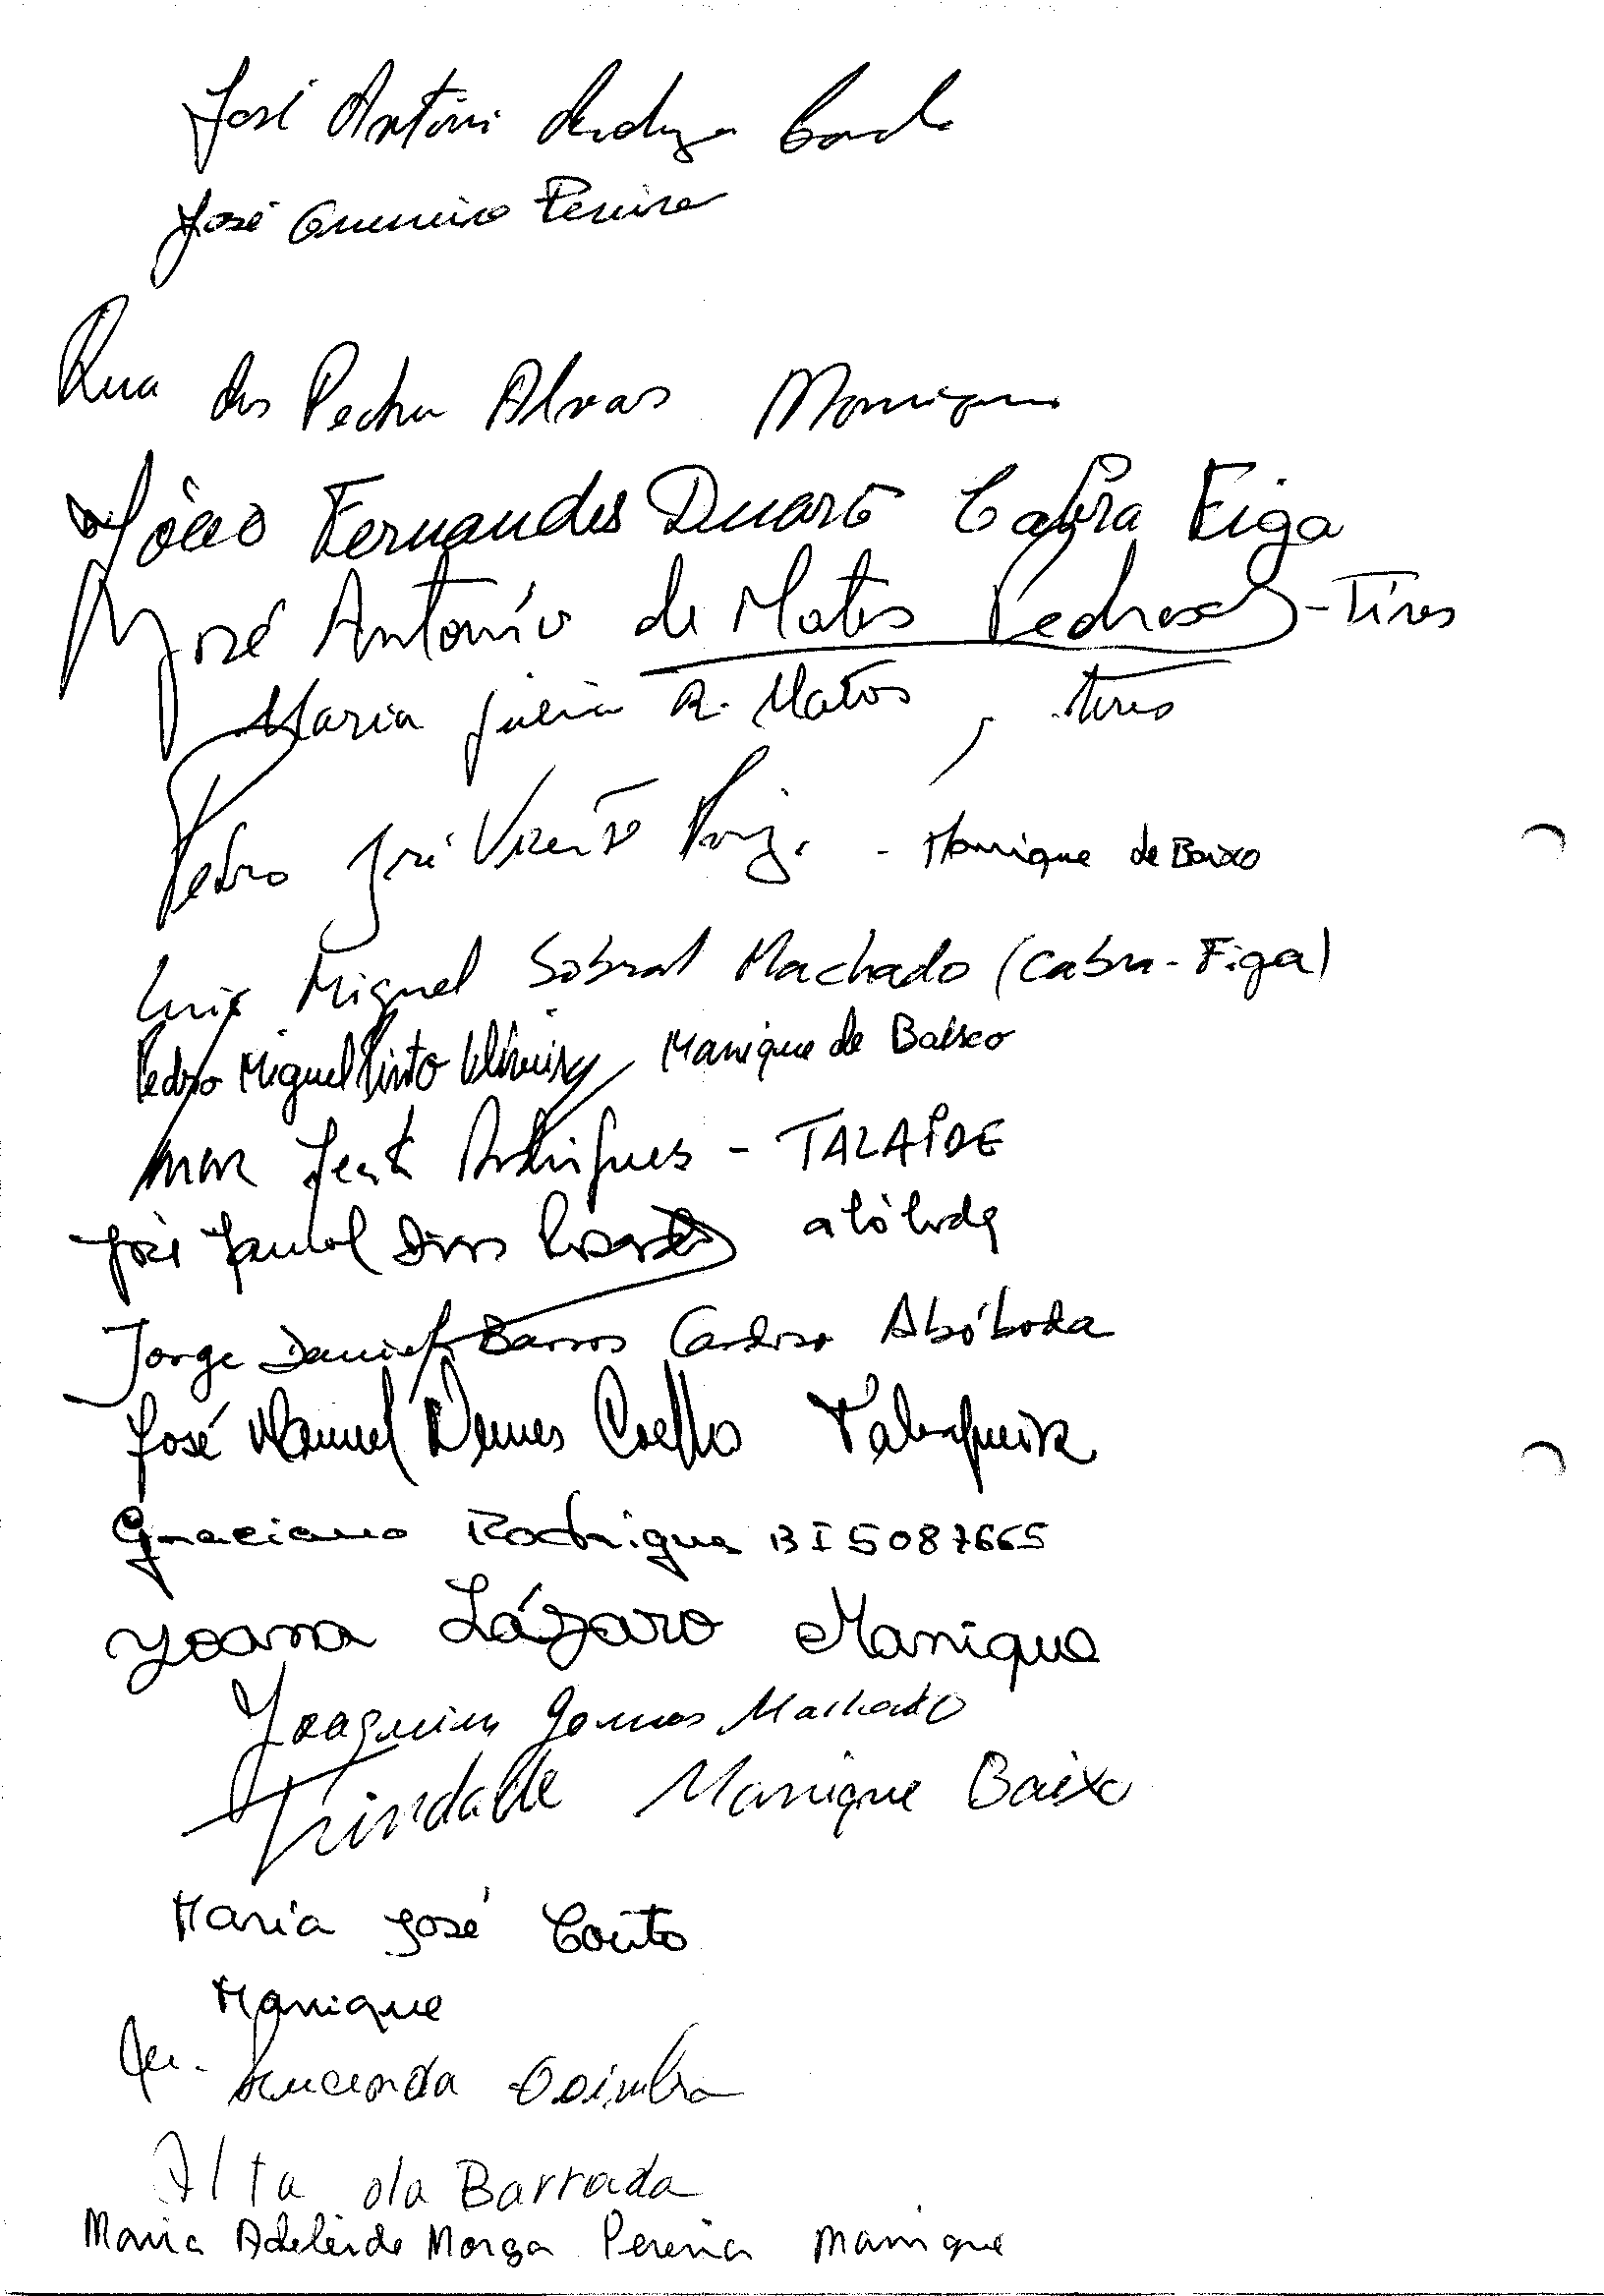 José António
José Guerreiro Pereira
Rua das Pedras Alvas Manique
João Fernandes Duarte Cabra Figa
José António de Matos Pedrosa - Tires
Maria Júlia R. Matos, tires
Pedro José Vicente - Manique de Baixo
Luis Miguel Sobral Machado (Cabra-Figa)
Pedro Miguel Pinto Oliveira Manique de Baixo
Rodrigues - TALAÍDE
José Manuel Dias abóboda
Jorge Daniel Barros Cardoso Abóboda
José Manuel Coelho
Graciano Rodrigues BI 5087665
Joana Lázaro Manique
Joaquim Gomes Machado
Trindade Manique Baixo
Maria José Couto
Manique
Coimbra
Alta da Barrada
Maria Adelaide Pereira Manique